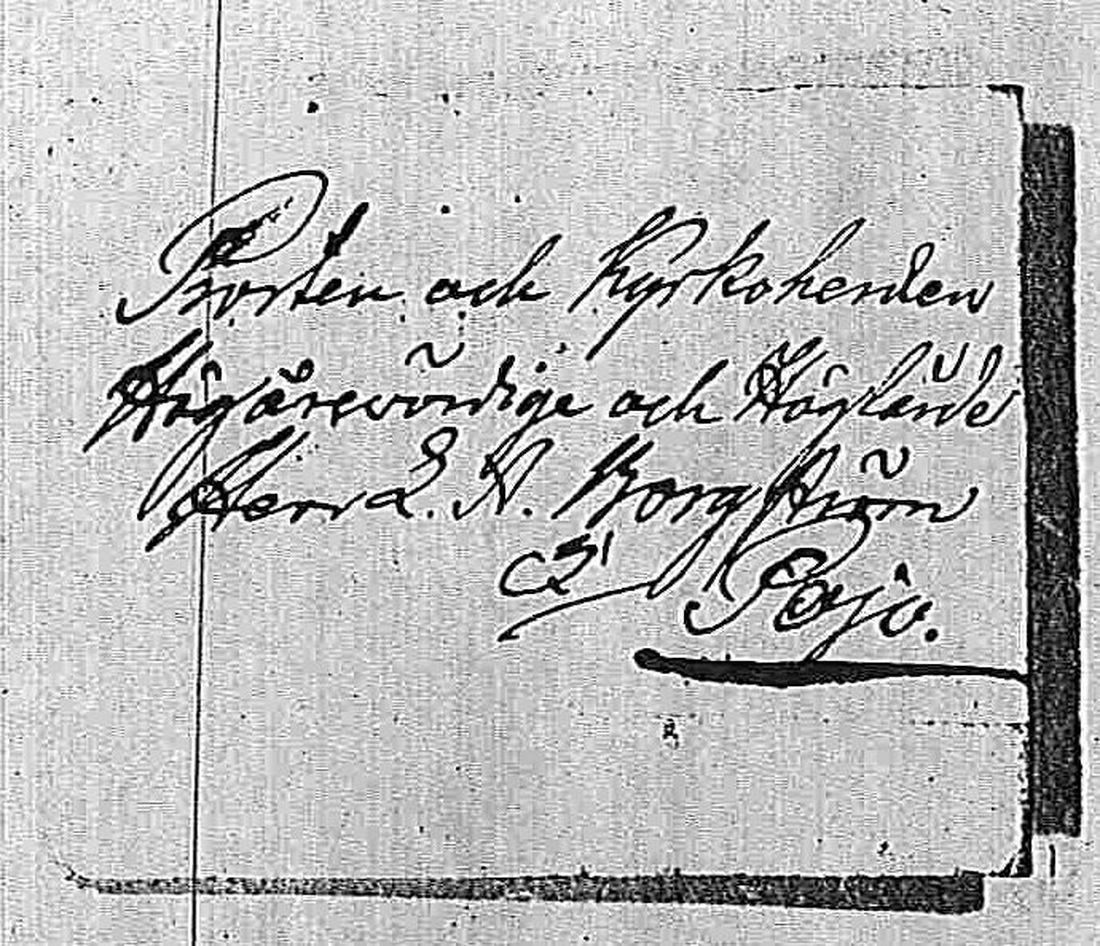 Prosten och Kyrkoherden
Högärevördige och Höglärde
Herr L. A. Borgström
Pojo.